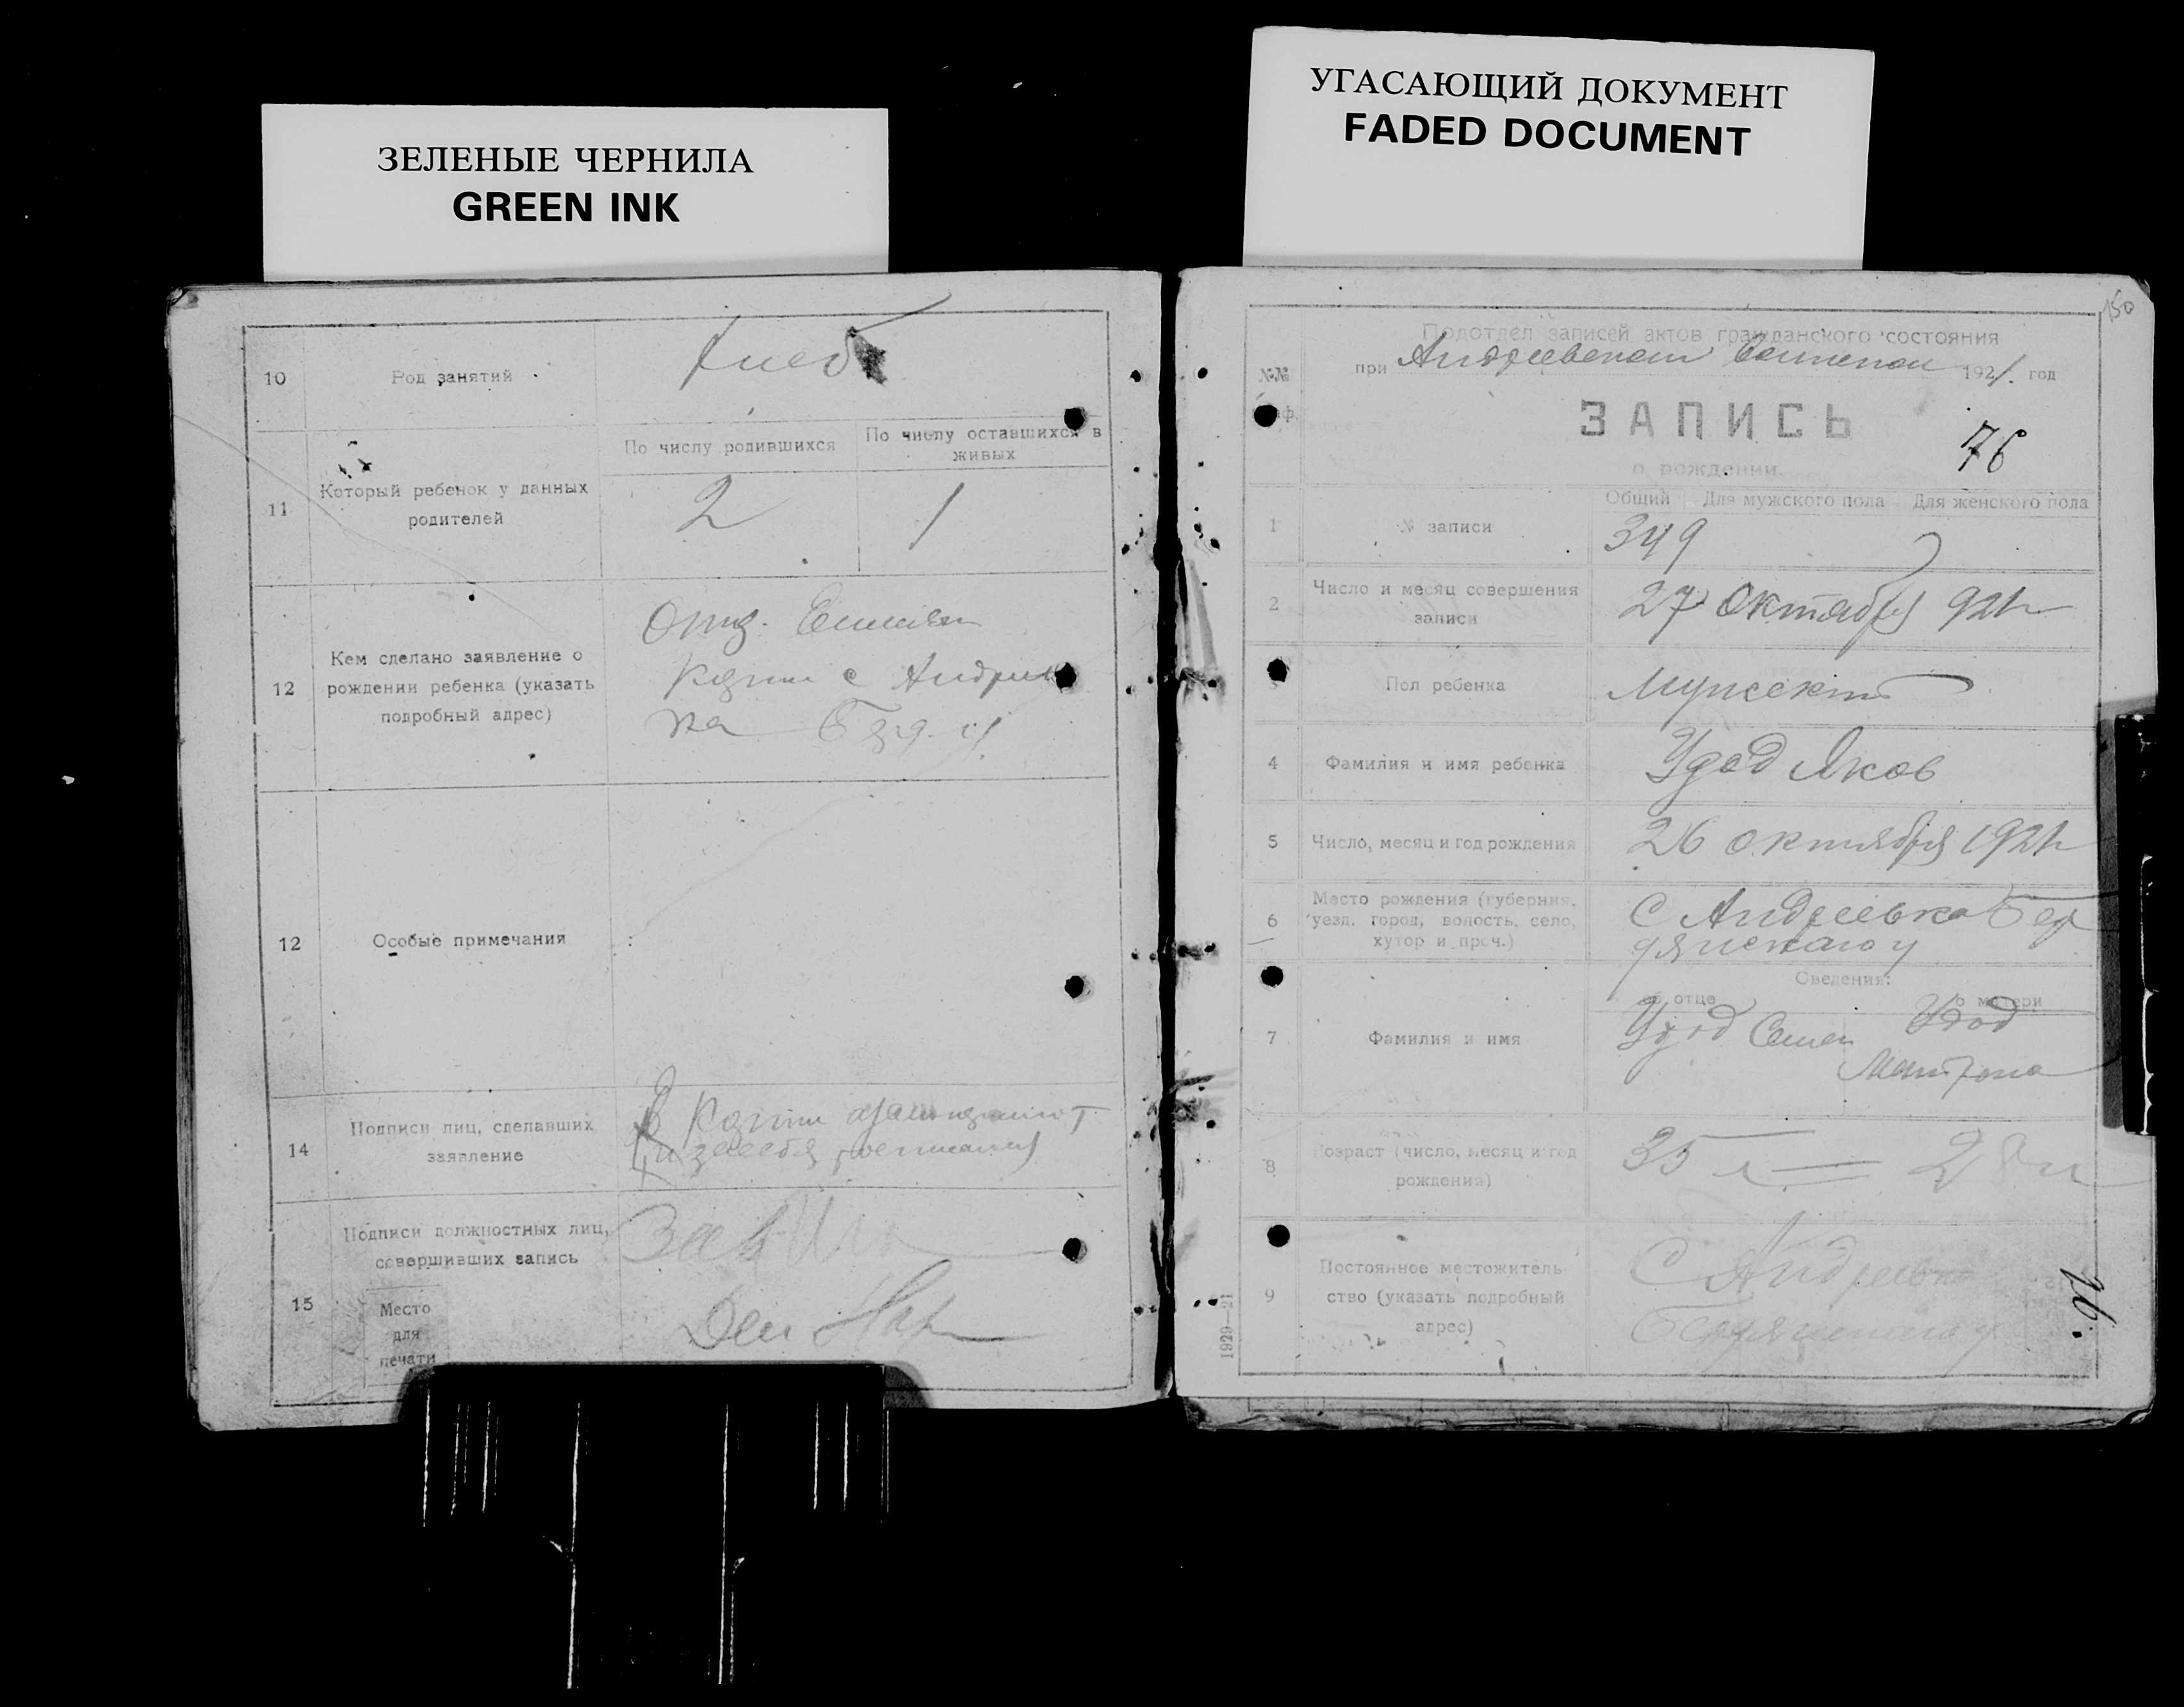 ЗЕЛЕНЫЕ ЧЕРНИЛА
GREEN INK
10 Род занятий
хлеб
11 Который ребенок у данных
родителей
По числу родившихся
По числу оставшихся в
живых
2 1
12 Кем сделано заявление о
рождении ребенка (указать
подробный адрес)
с Андреев
ка
12 Особые примечания
14 Подписи лиц, сделавших
заявление
15 Подписи должностных лиц,
совершивших запись
Место
для
печати
Зав
УГАСАЮЩИЙ ДОКУМЕНТ
FADED DOCUMENT
150
Подотдел записей актов гражданского состояния
№№
при Андреевском 1921. год
ЗАПИСЬ
о рождении
76
Общий Для мужского пола Для женского пола
1 № записи 349
2 Число и месяц совершения
записи
27 Октября 921 г
Пол ребенка
4 Фамилия и имя ребенка Удод Яков
5 Число, месяц и год рождения 26 октября 1921 г
6 Место рождения (губерния,
уезд, город, волость, село,
хутор и проч.)
С Андреевка Бер
дянского у
Сведения:
об отце о матери
7 Фамилия и имя
Удод Семен Удод
Матрона
8 Возраст (число, месяц и год
рождения)
35 л 28 л
9 Постоянное местожитель
ство (указать подробный
адрес)
С Андреевка
1929—21
26.